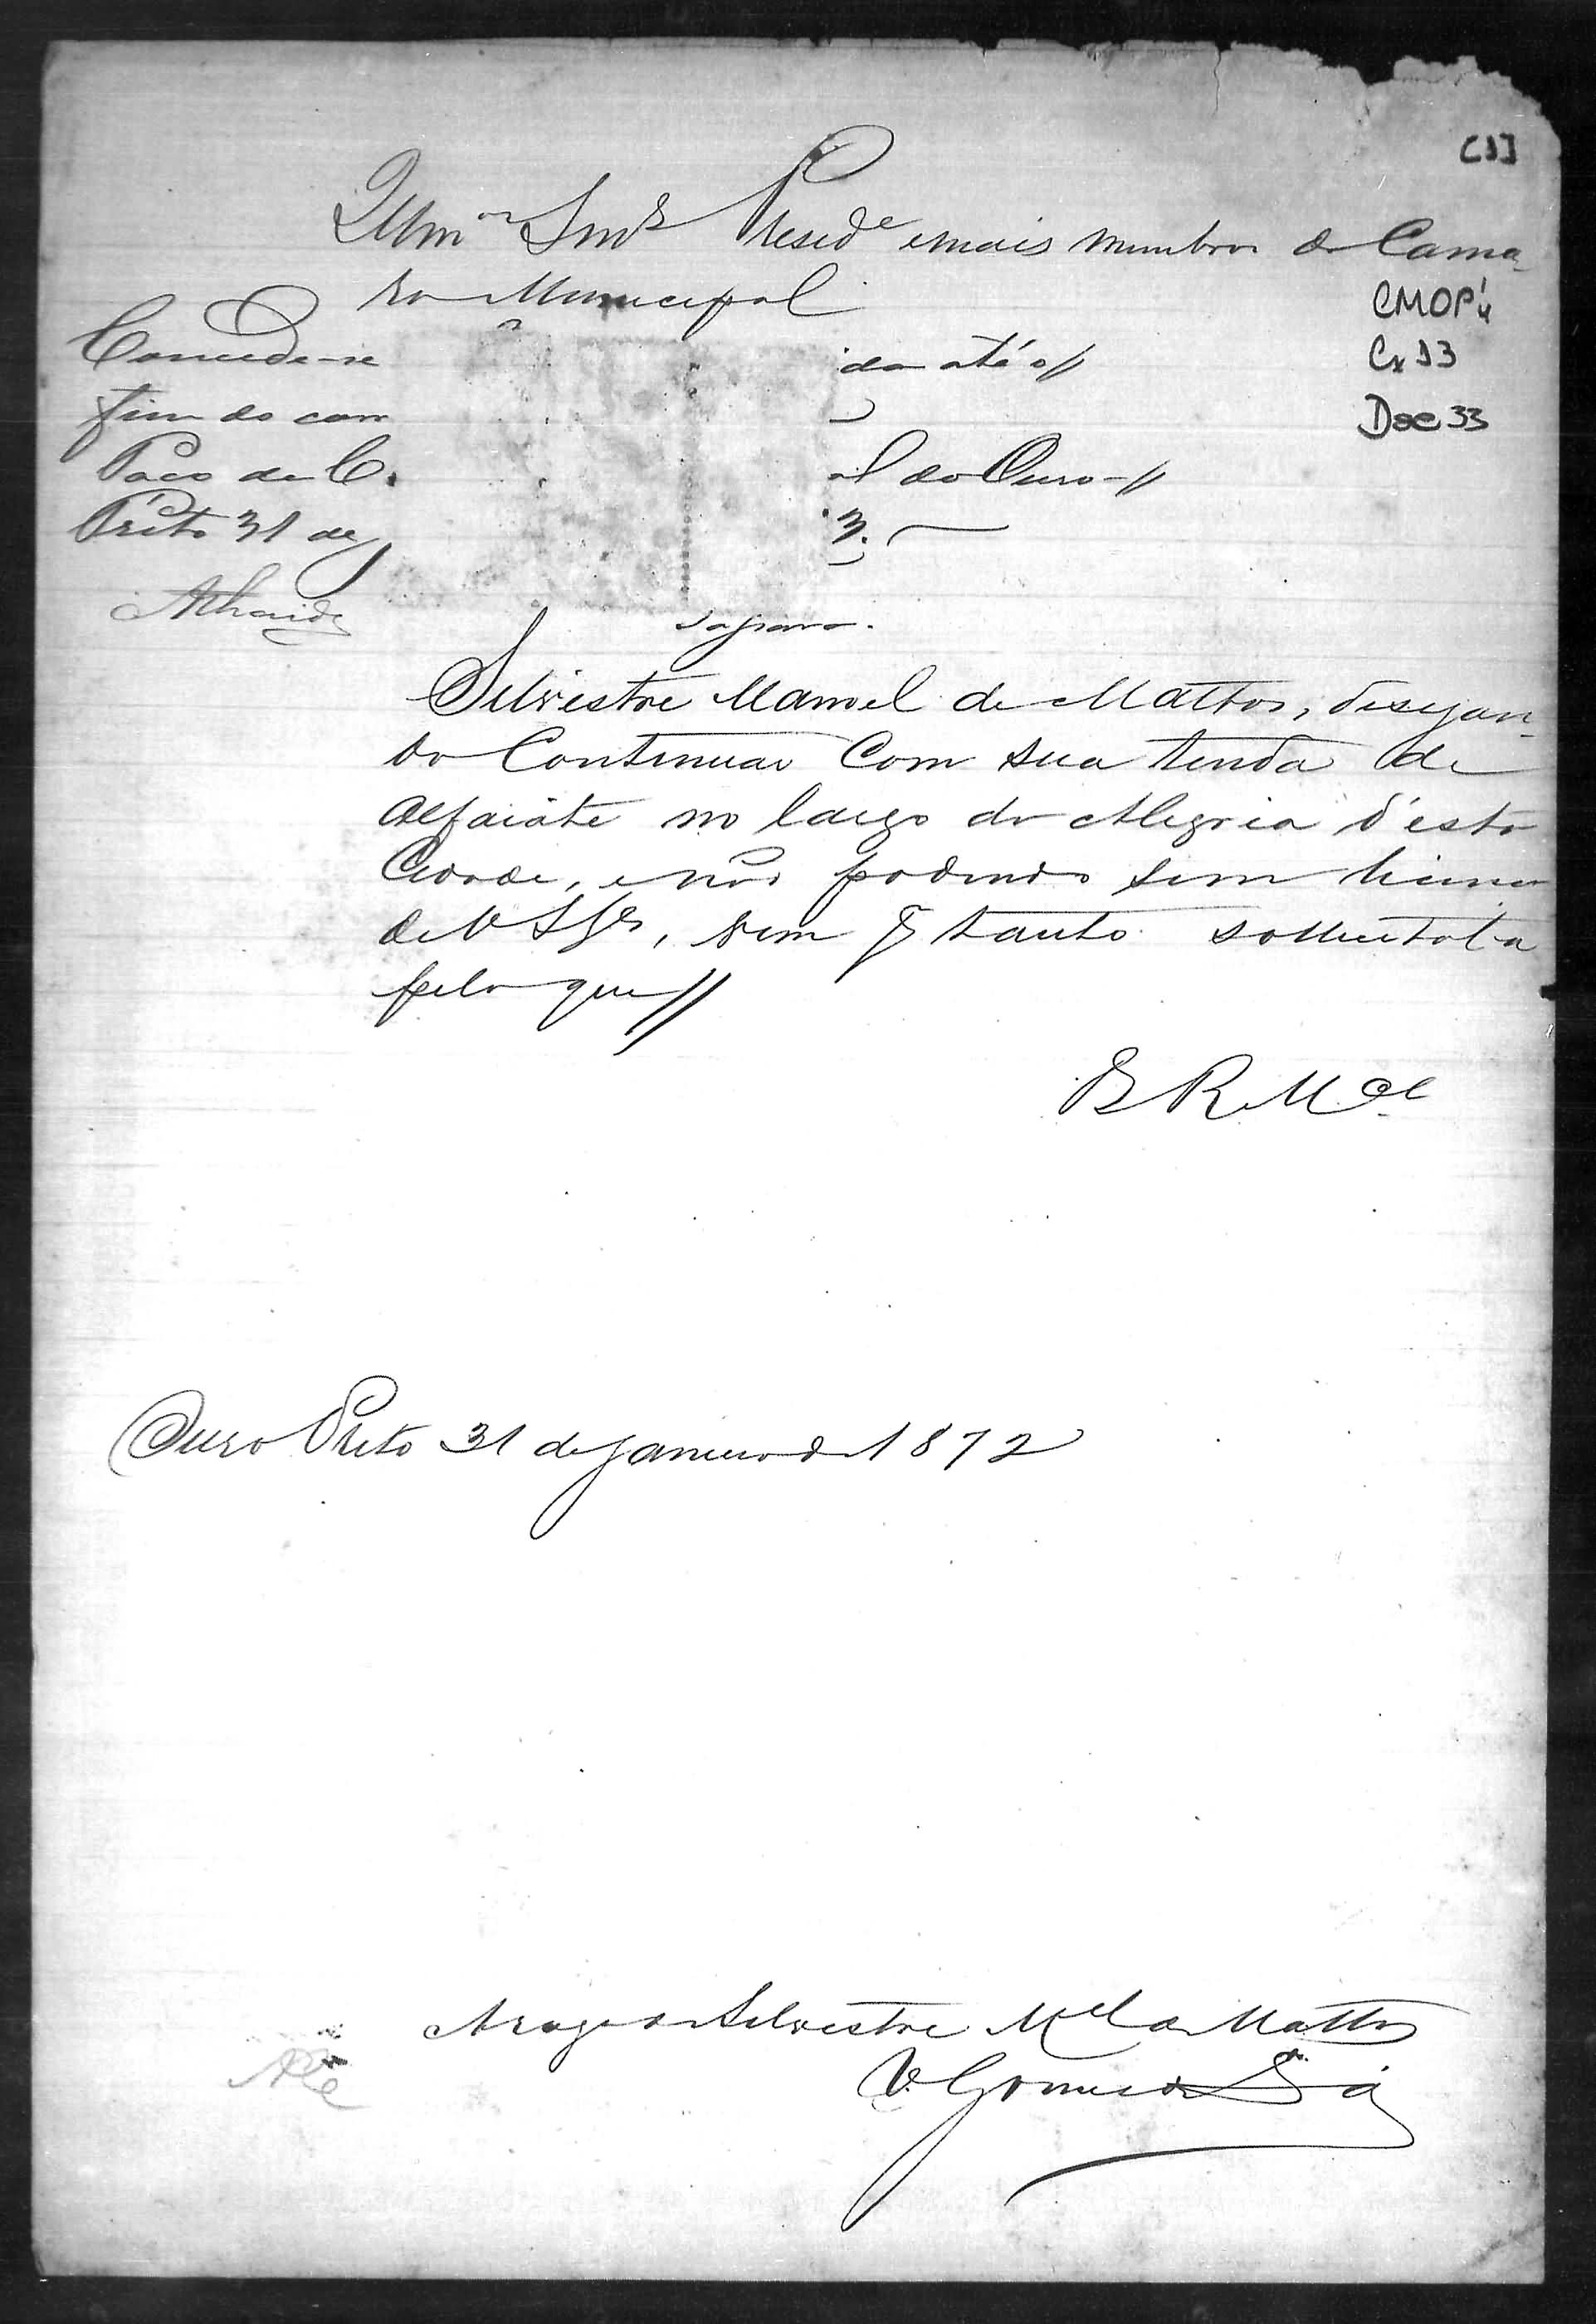 [1]
Illm.os Snrs Preside.e e mais membros da Cama-
ra Municipal
CMOP
Cx 13
Doc 33
Concede-se da até o//
fim do corr
Paço da C. al do Ouro-//
Preto 31 de J 3.
Athaide
Silvestre Manoel de Mattos, desejan-
do Continuar Com sua tenda de
Alfaiate no largo da Alegria d'esta
Cidade, e não podendo sem licença
de V S Sas, vem p tanto sollicital-a
pelo que//
E R M.ce
Ouro Preto 31 de Janeiro de 1872
A rogo de Silvestre M.el de Mattos
V. Gomes de Sá